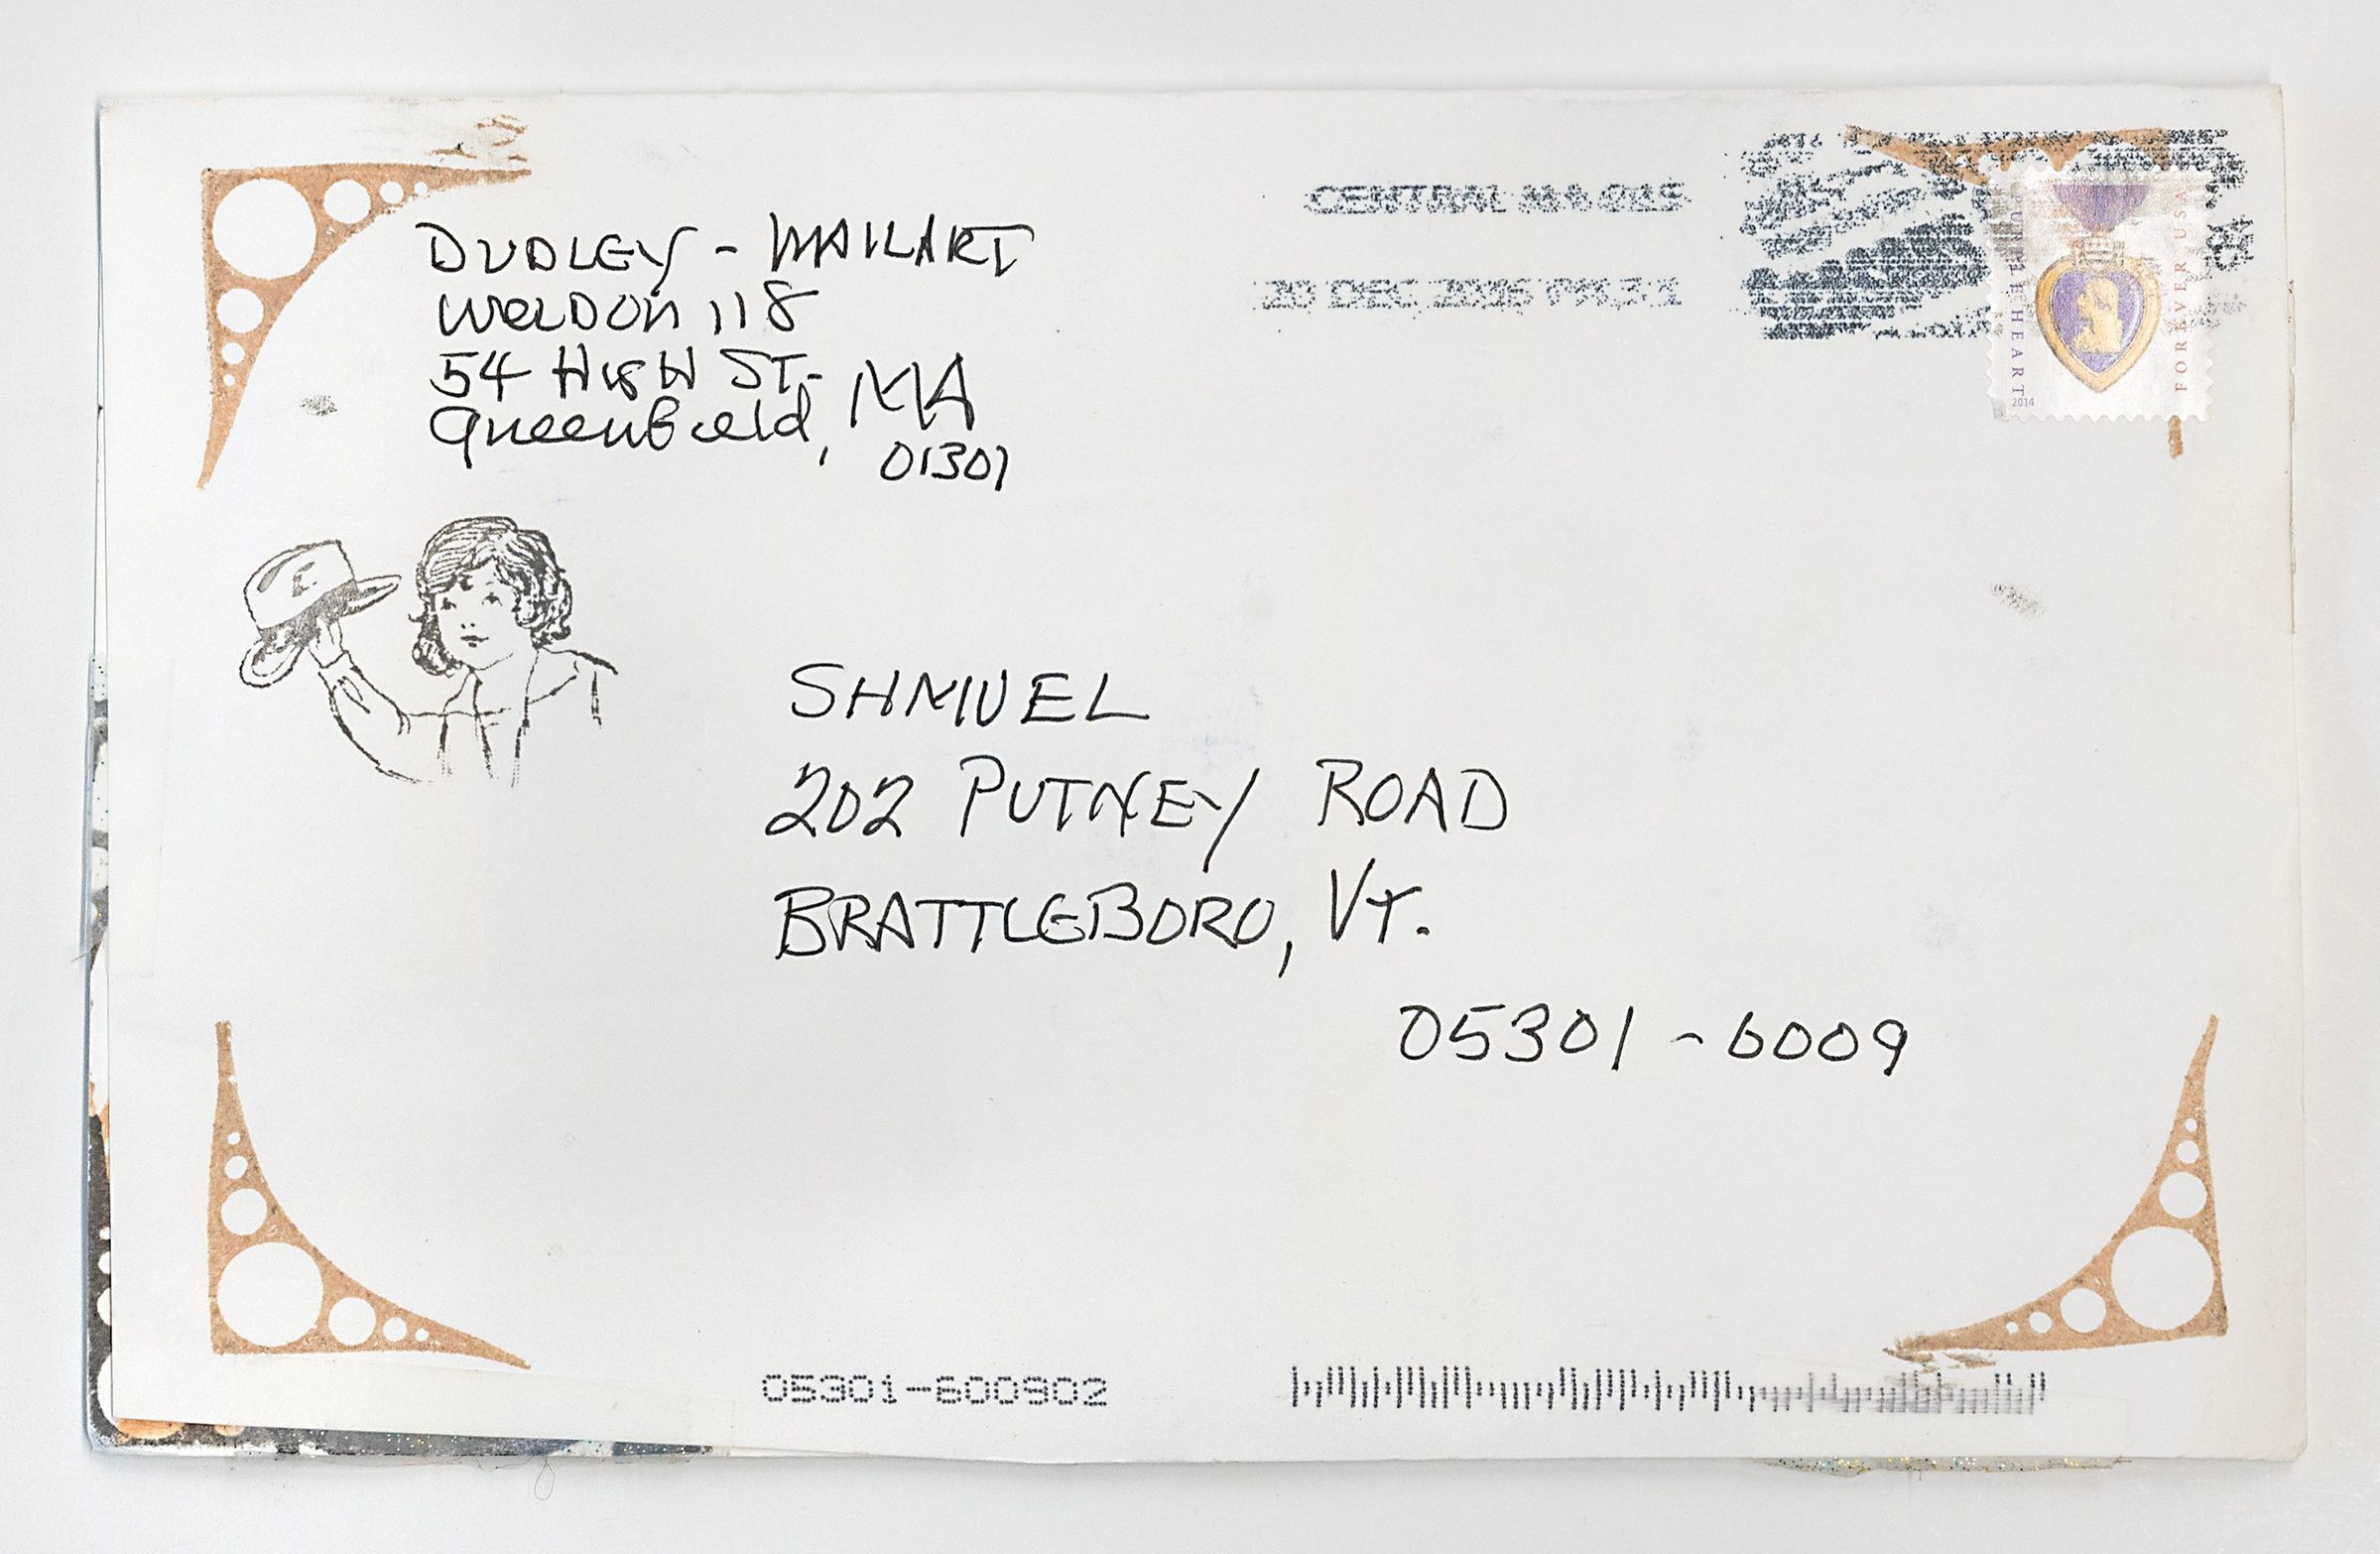 DUDLEY - MAILART
WELDON 118
54 HIGH ST.
Greenfield, MA
01301
CENTRAL MA 015
20 DEC 2016 PM 3 L
PURPLE HEART
2014
FOREVER USA
SHMUEL
202 PUTNEY ROAD
BRATTLEBORO, VT.
05301 - 6009
05301-600902